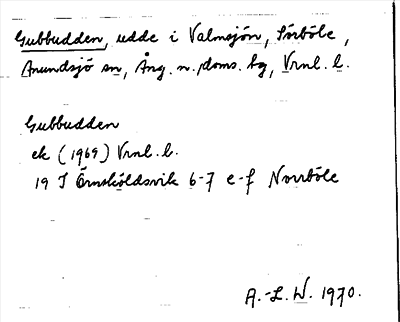 Gubbudden, udde i Valmsjön, Sörböle,
Anundsjö sn, Ång. n. doms. bg, Vrnl. l.
Gubbudden
ek (1969) Vrnl. l.
19 I Örnsköldsvik 6-7 e-f Norrböle
A.-L. W. 1970.